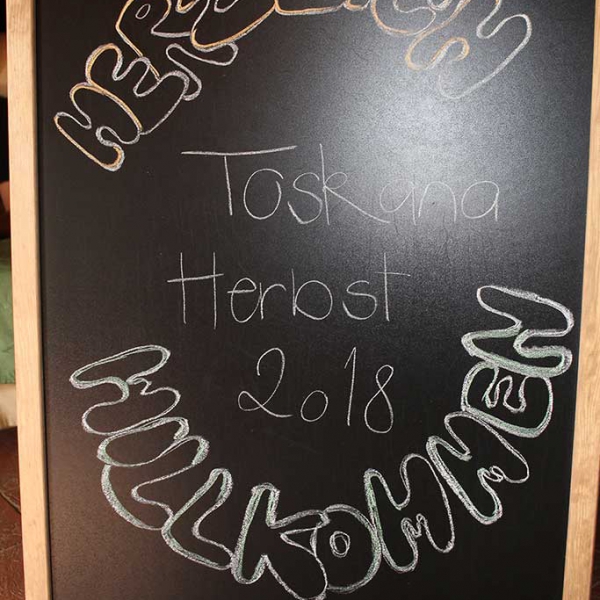 HERZLICH
Toskana
Herbst
2018
WILLKOMMEN